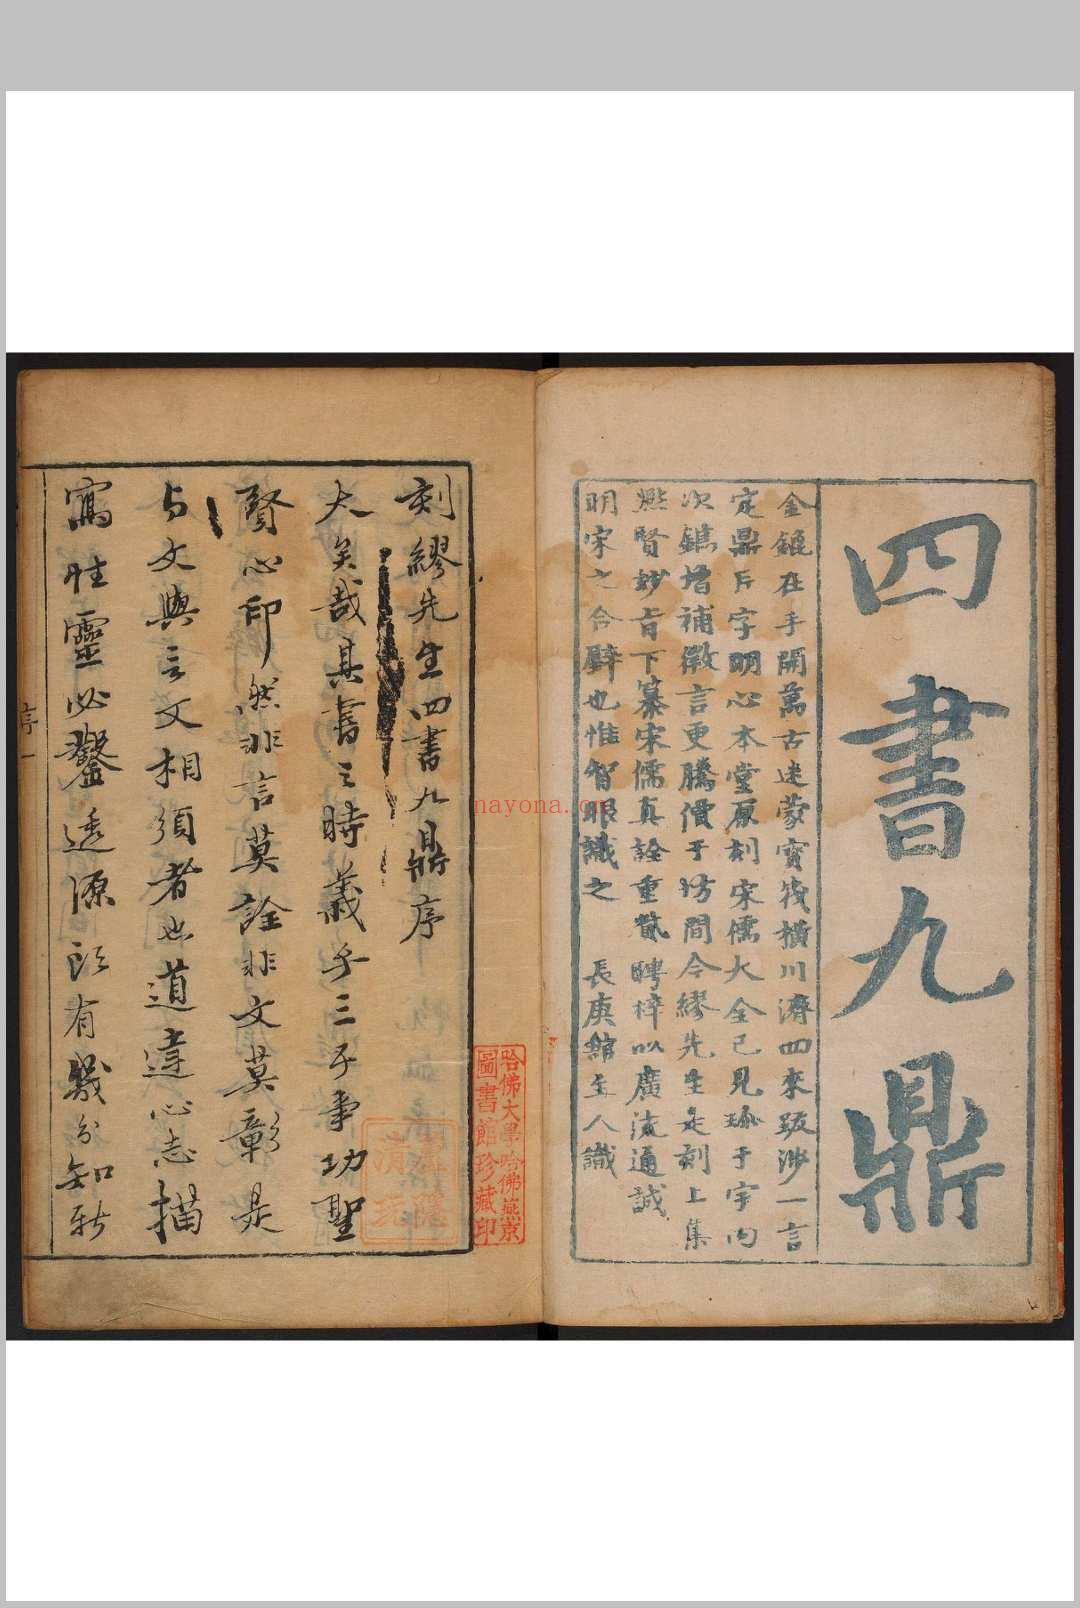 四書九鼎
金鎞在手開萬古迷蒙寶筏橫川濟四來跋涉一言
定鼎片字明心本堂原刻宋儒大全已見珍于宇內
次鐫增補微言更騰價于坊間今繆先生是刻上集
熙賢妙旨下纂宋儒真詮重貲聘梓以廣流通誠
明宋之合璧也惟智眼識之 長庚館主人識
刻繆先生四書九鼎序
大矣哉其書之時義乎三不事功聖
賢心印然非言莫詮非文莫彰是
與文與言文相須者也道達心志描
寫性靈必鑿透源頭有幾分知新
序 一
哈佛大學哈佛燕京
圖書館珍藏印
nayona.cn